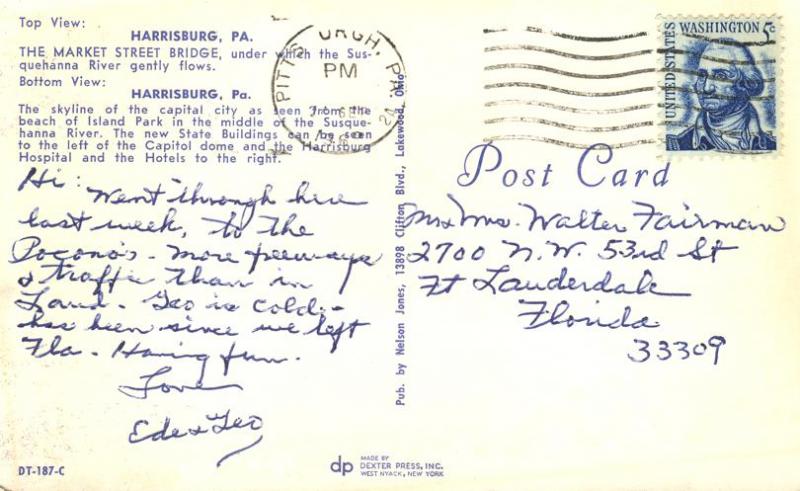 Top View:
HARRISBURG, PA.
THE MARKET STREET BRIDGE, under which the Sus-
quehanna River gently flows.
Bottom View:
HARRISBURG, Pa.
The skyline of the capital city as seen from the
beach of Island Park in the middle of the Susque-
hanna River. The new State Buildings can be seen
to the left of the Capitol dome and the Harrisburg
Hospital and the Hotels to the right.
Hi: Went through here
last week, to the
Pocono's - More freeways
& traffic than in
Laud. Geo is cold -
has been since we left
Fla - Having fun.
Love
Ede & Geo
DT-187-C
PITTSBURGH, PA
PM
Pub. by Nelson Jones, 13898 Clifton Blvd., Lakewood, Ohio
UNITED STATES
WASHINGTON 5c
Post Card
Mr & Mrs. Walter Fairman
2700 N.W. 53rd St
Ft Lauderdale
Florida
33309
dp
MADE BY
DEXTER PRESS, INC.
WEST NYACK, NEW YORK